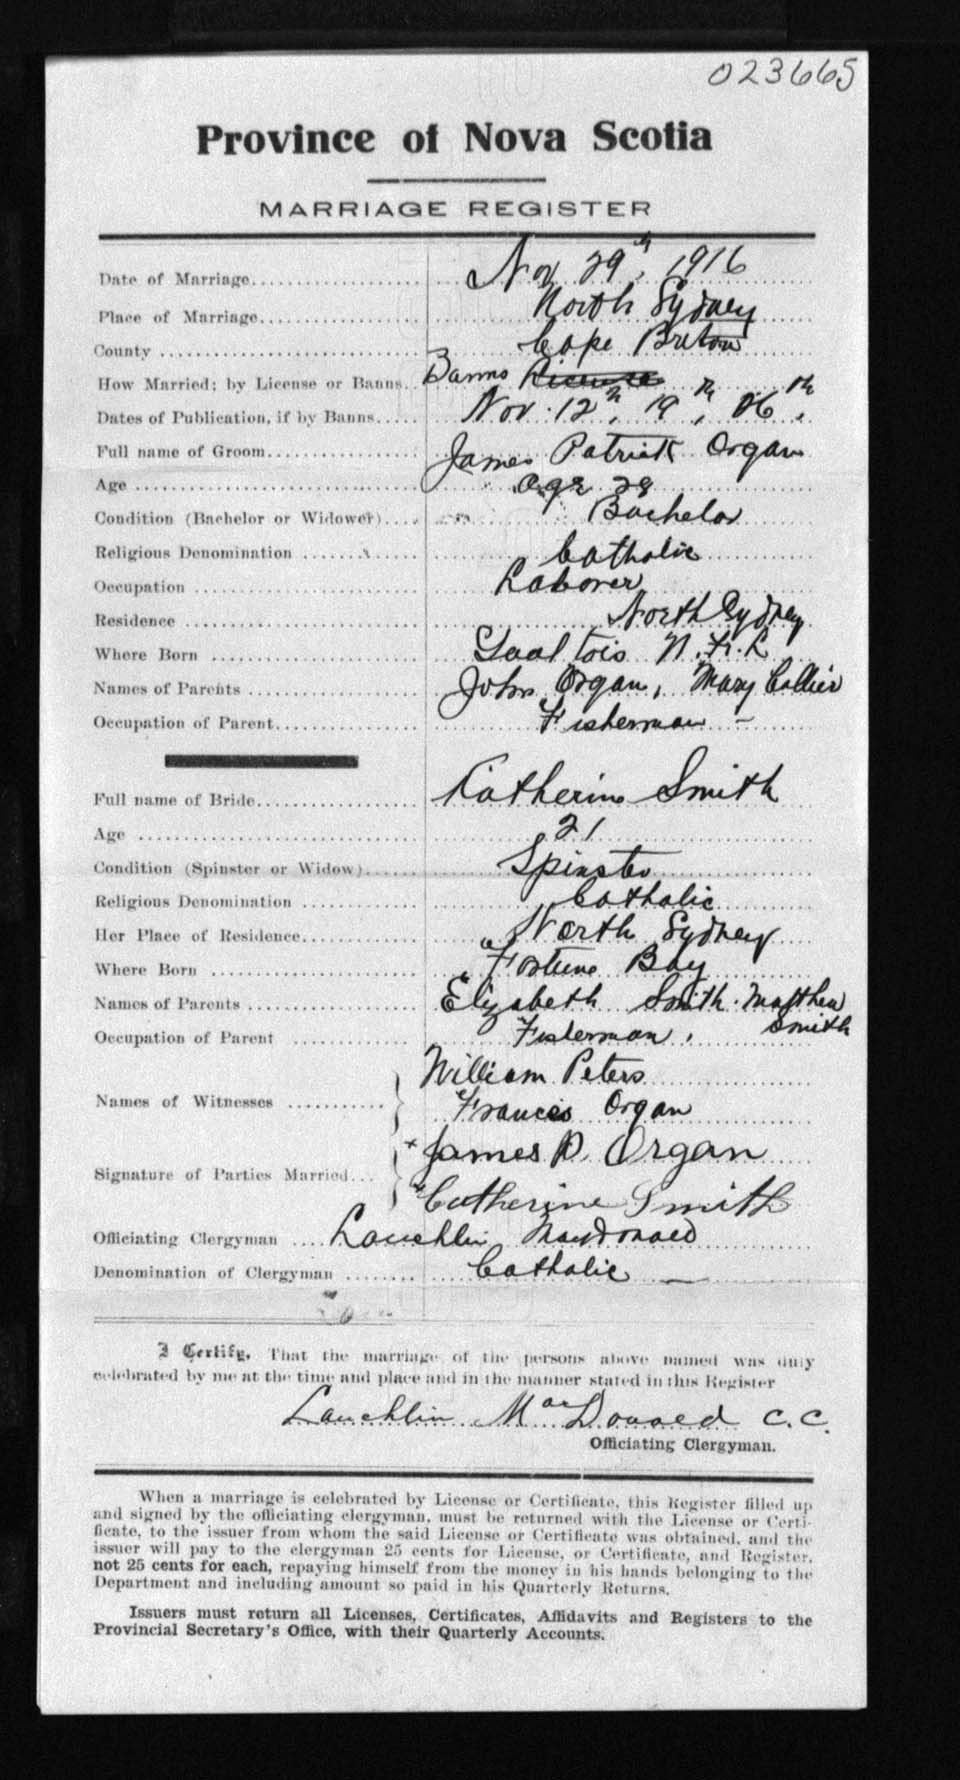 023665
Province of Nova Scotia
MARRIAGE REGISTER
Date of Marriage Nov 29th, 1916
Place of Marriage North Sydney
County Cape Breton
How Married; by License or Banns Banns License
Dates of Publication, if by Banns Nov. 12th, 19th, 26th,
Full name of Groom James Patrick Organ
Age age 29
Condition (Bachelor or Widower) Bachelor
Religious Denomination Catholic
Occupation Laborer
Residence North Sydney
Where Born Gaultois N.F.L
Names of Parents John Organ, Mary Collier
Occupation of Parent Fisherman –
Full name of Bride Katherine Smith
Age 21
Condition (Spinster or Widow) Spinster
Religious Denomination Catholic
Her Place of Residence North Sydney
Where Born Fortune Bay
Names of Parents Elizabeth Smith. Matthew
Smith
Occupation of Parent Fisherman,
William Peters
Names of Witnesses
Frances Organ
x James P. Organ
Signature of Parties Married
x Catherine Smith
Officiating Clergyman Lauchlin MacDonald
Denomination of Clergyman Catholic —
I Certify, That the marriage of the persons above named was duly
celebrated by me at the time and place and in the manner stated in this Register
Lauchlin MacDonald C.C.
Officiating Clergyman.
When a marriage is celebrated by License or Certificate, this Register filled up
and signed by the officiating clergyman, must be returned with the License or Certi-
ficate, to the issuer from whom the said License or Certificate was obtained, and the
issuer will pay to the clergyman 25 cents for License, or Certificate, and Register,
not 25 cents for each, repaying himself from the money in his hands belonging to the
Department and including amount so paid in his Quarterly Returns.
Issuers must return all Licenses, Certificates, Affidavits and Registers to the
Provincial Secretary's Office, with their Quarterly Accounts.